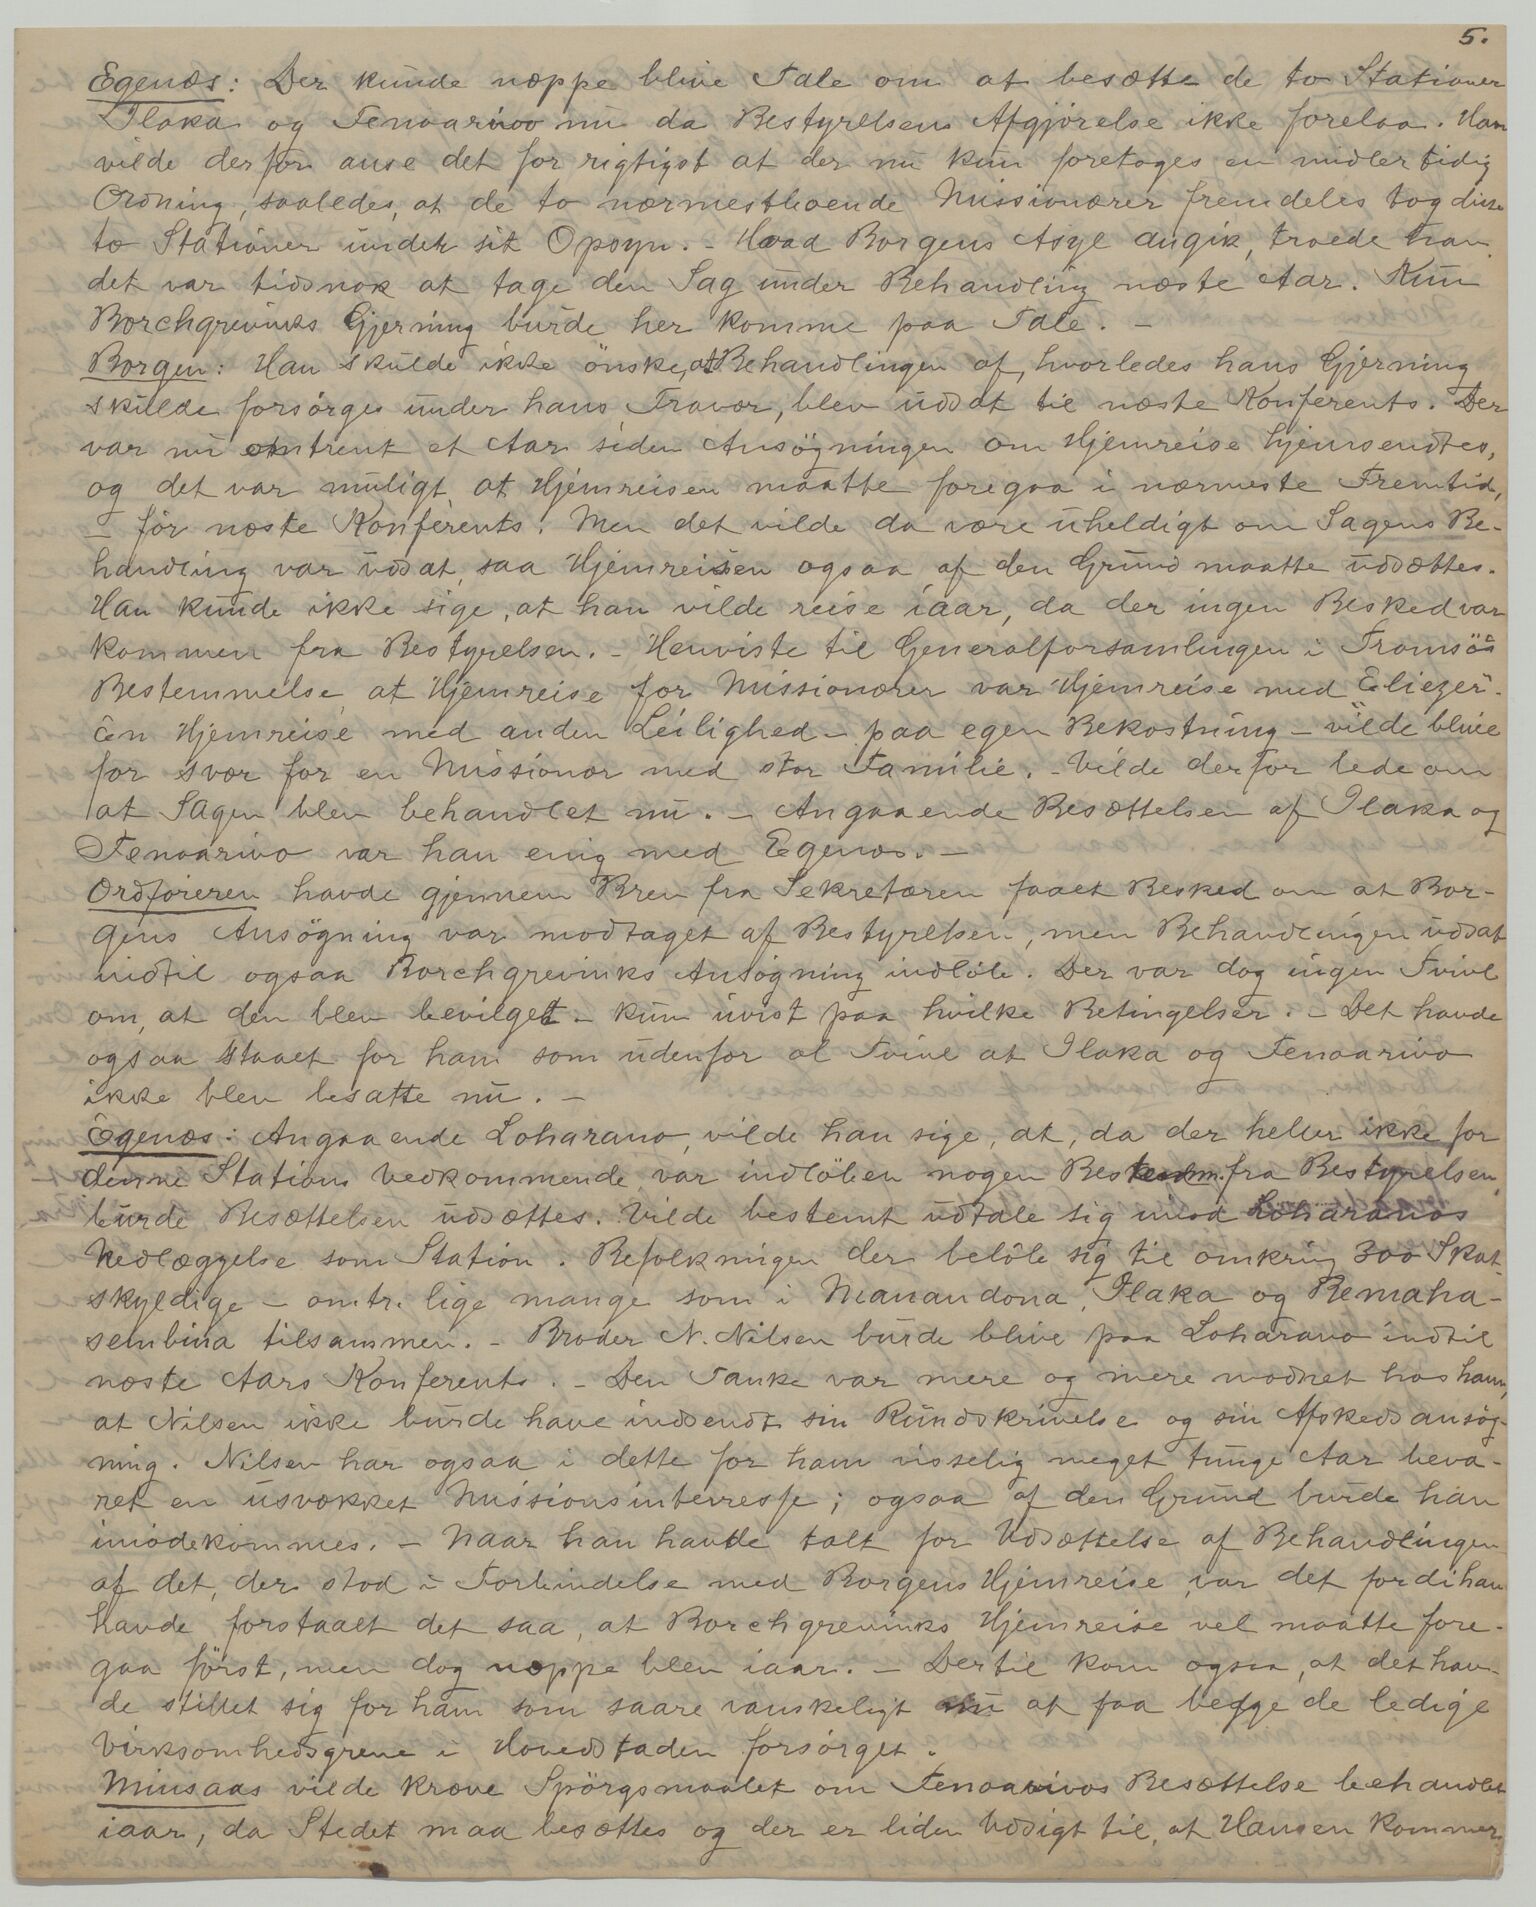 5.
Egenæs: Der kunde næppe blive Tale om at besætte de to Stationer
Ilaka og Fenoarivo nu da Bestyrelsens Afgjørelse ikke forelaa. Han
vilde derfor anse det for rigtigst at der nu kun foretoges en midlertidig
Ordning, saaledes, at de to nærmestboende Missionærer fremdeles tog disse
to Stationer under sit Opsyn. - Hvad Borgens Asyl angik, troede han
det var tidsnok at tage den Sag under Behandling næste Aar. Kun
Borchgrevinks Gjerning burde her komme paa Tale. -
Borgen: Han skulde ikke önske, at Behandlingen af, hvorledes hans Gjerning
skulde forsörges under hans Fravær, blev udsat til næste Konferents. Der
var nu omtrent et Aar siden Ansögningen om Hjemreise hjemsendtes,
og det var muligt, at Hjemreisen maatte foregaa i nærmeste Fremtid,
- för næste Konferents. Men det vilde da være uheldigt om Sagens Be-
handling var udsat, saa Hjemreisen ogsaa af den Grund maatte udsættes.
Han kunde ikke sige, at han vilde reise iaar, da der ingen Besked var
kommen fra Bestyrelsen. - Henviste til Generalforsamlingen i Tromsöes
Bestemmelse at Hjemreise for Missionærer var Hjemreise med Eliezer.
En Hjemreise med anden Leilighed - paa egen Bekostning - vilde blive
for svær for en Missionær med stor Familie. - Vilde derfor bede om
at Sagen blev behandlet nu. - Angaaende Besættelsen af Ilaka og
Fenoarivo var han enig med Egenæs. -
Ordföreren havde gjennem Brev fra Sekretæren faaet Besked om at Bor-
gens Ansögning var modtaget af Bestyrelsen, men Behandlingen udsat
indtil ogsaa Borchgrevinks Ansögning indlöb. Der var dog ingen Tvivl
om, at den blev bevilget - kun uvist paa hvilke Betingelser. - Det havde
ogsaa staaet for ham som udenfor al Tvivl at Ilaka og Fenoarivo
ikke blev besatte nu. -
Egenæs: Angaaende Loharano, vilde han sige, at, da der heller ikke for
denne Stations Vedkommende var indlöben nogen Bestem. fra Bestyrelsen,
burde Besættelsen udsættes. Vilde bestemt udtale sig imod Loharanos
Nedlæggelse som Station. Befolkningen der belöb sig til omkring 300 Skat-
skyldige - omtr. lige mange som i Manandona, Ilaka og Bemaha-
sembina tilsammen. - Broder N. Nilsen burde blive paa Loharano indtil
næste Aars Konferents. - Den Tanke var mere og mere modnet hos ham,
at Nilsen ikke burde have indsendt sin Rundskrivelse og sin Afskedsansög-
ning. Nilsen har ogsaa i dette for ham visselig meget tunge Aar beva-
ret en usvækket Missionsinteresse; ogsaa af den Grund burde han
imödekommes. - Naar han havde talt for Udsættelse af Behandlingen
af det, der stod i Forbindelse med Borgens Hjemreise, var det fordi han
havde forstaaet det saa, at Borchgrevinks Hjemreise vel maatte fore-
gaa först, men dog næppe blev iaar. - Dertil kom ogsaa, at det hav-
de stillet sig for ham som saare vanskeligt nu at faa begge de ledige
Virksomhedsgrene i Hovedstaden forsörget.
Minsaas vilde kræve Spörgsmaalet om Fenoarivos Besættelse behandlet
iaar, da Stedet maa besættes og der er liden Udsigt til, at Hansen kommer